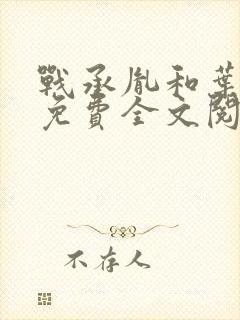 戰承胤和葉
免費全文閱
不存人